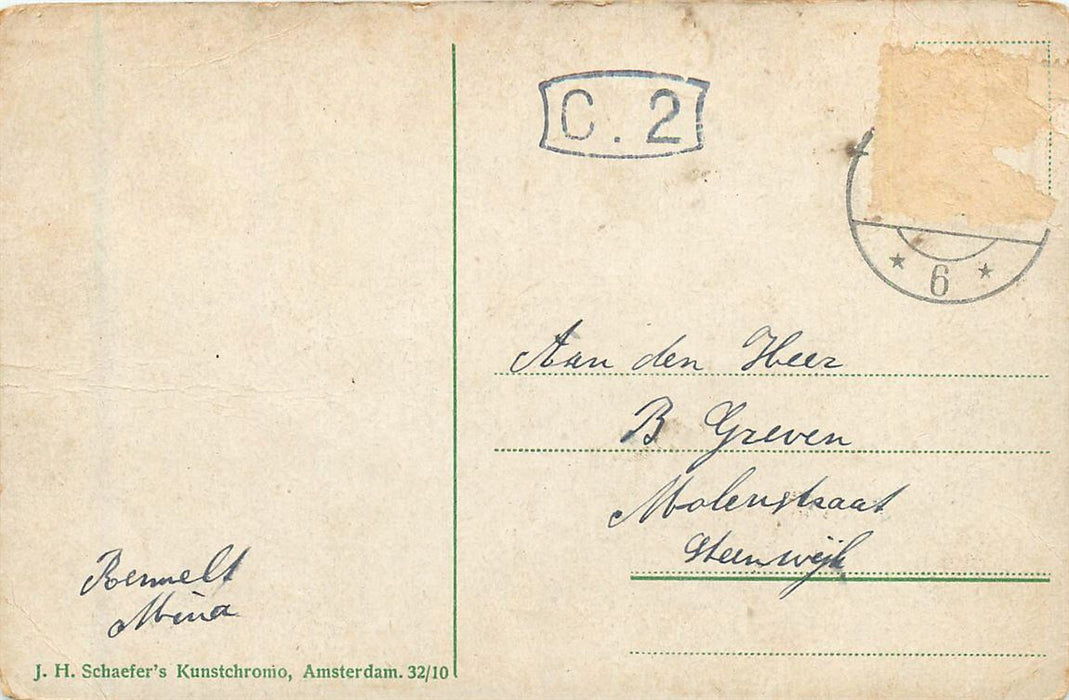 C. 2
6
Aan den Heer
B Greven
Molenstraat
Steenwijk
Remelt
Mina
J. H. Schaefer's Kunstchromo, Amsterdam. 32/10